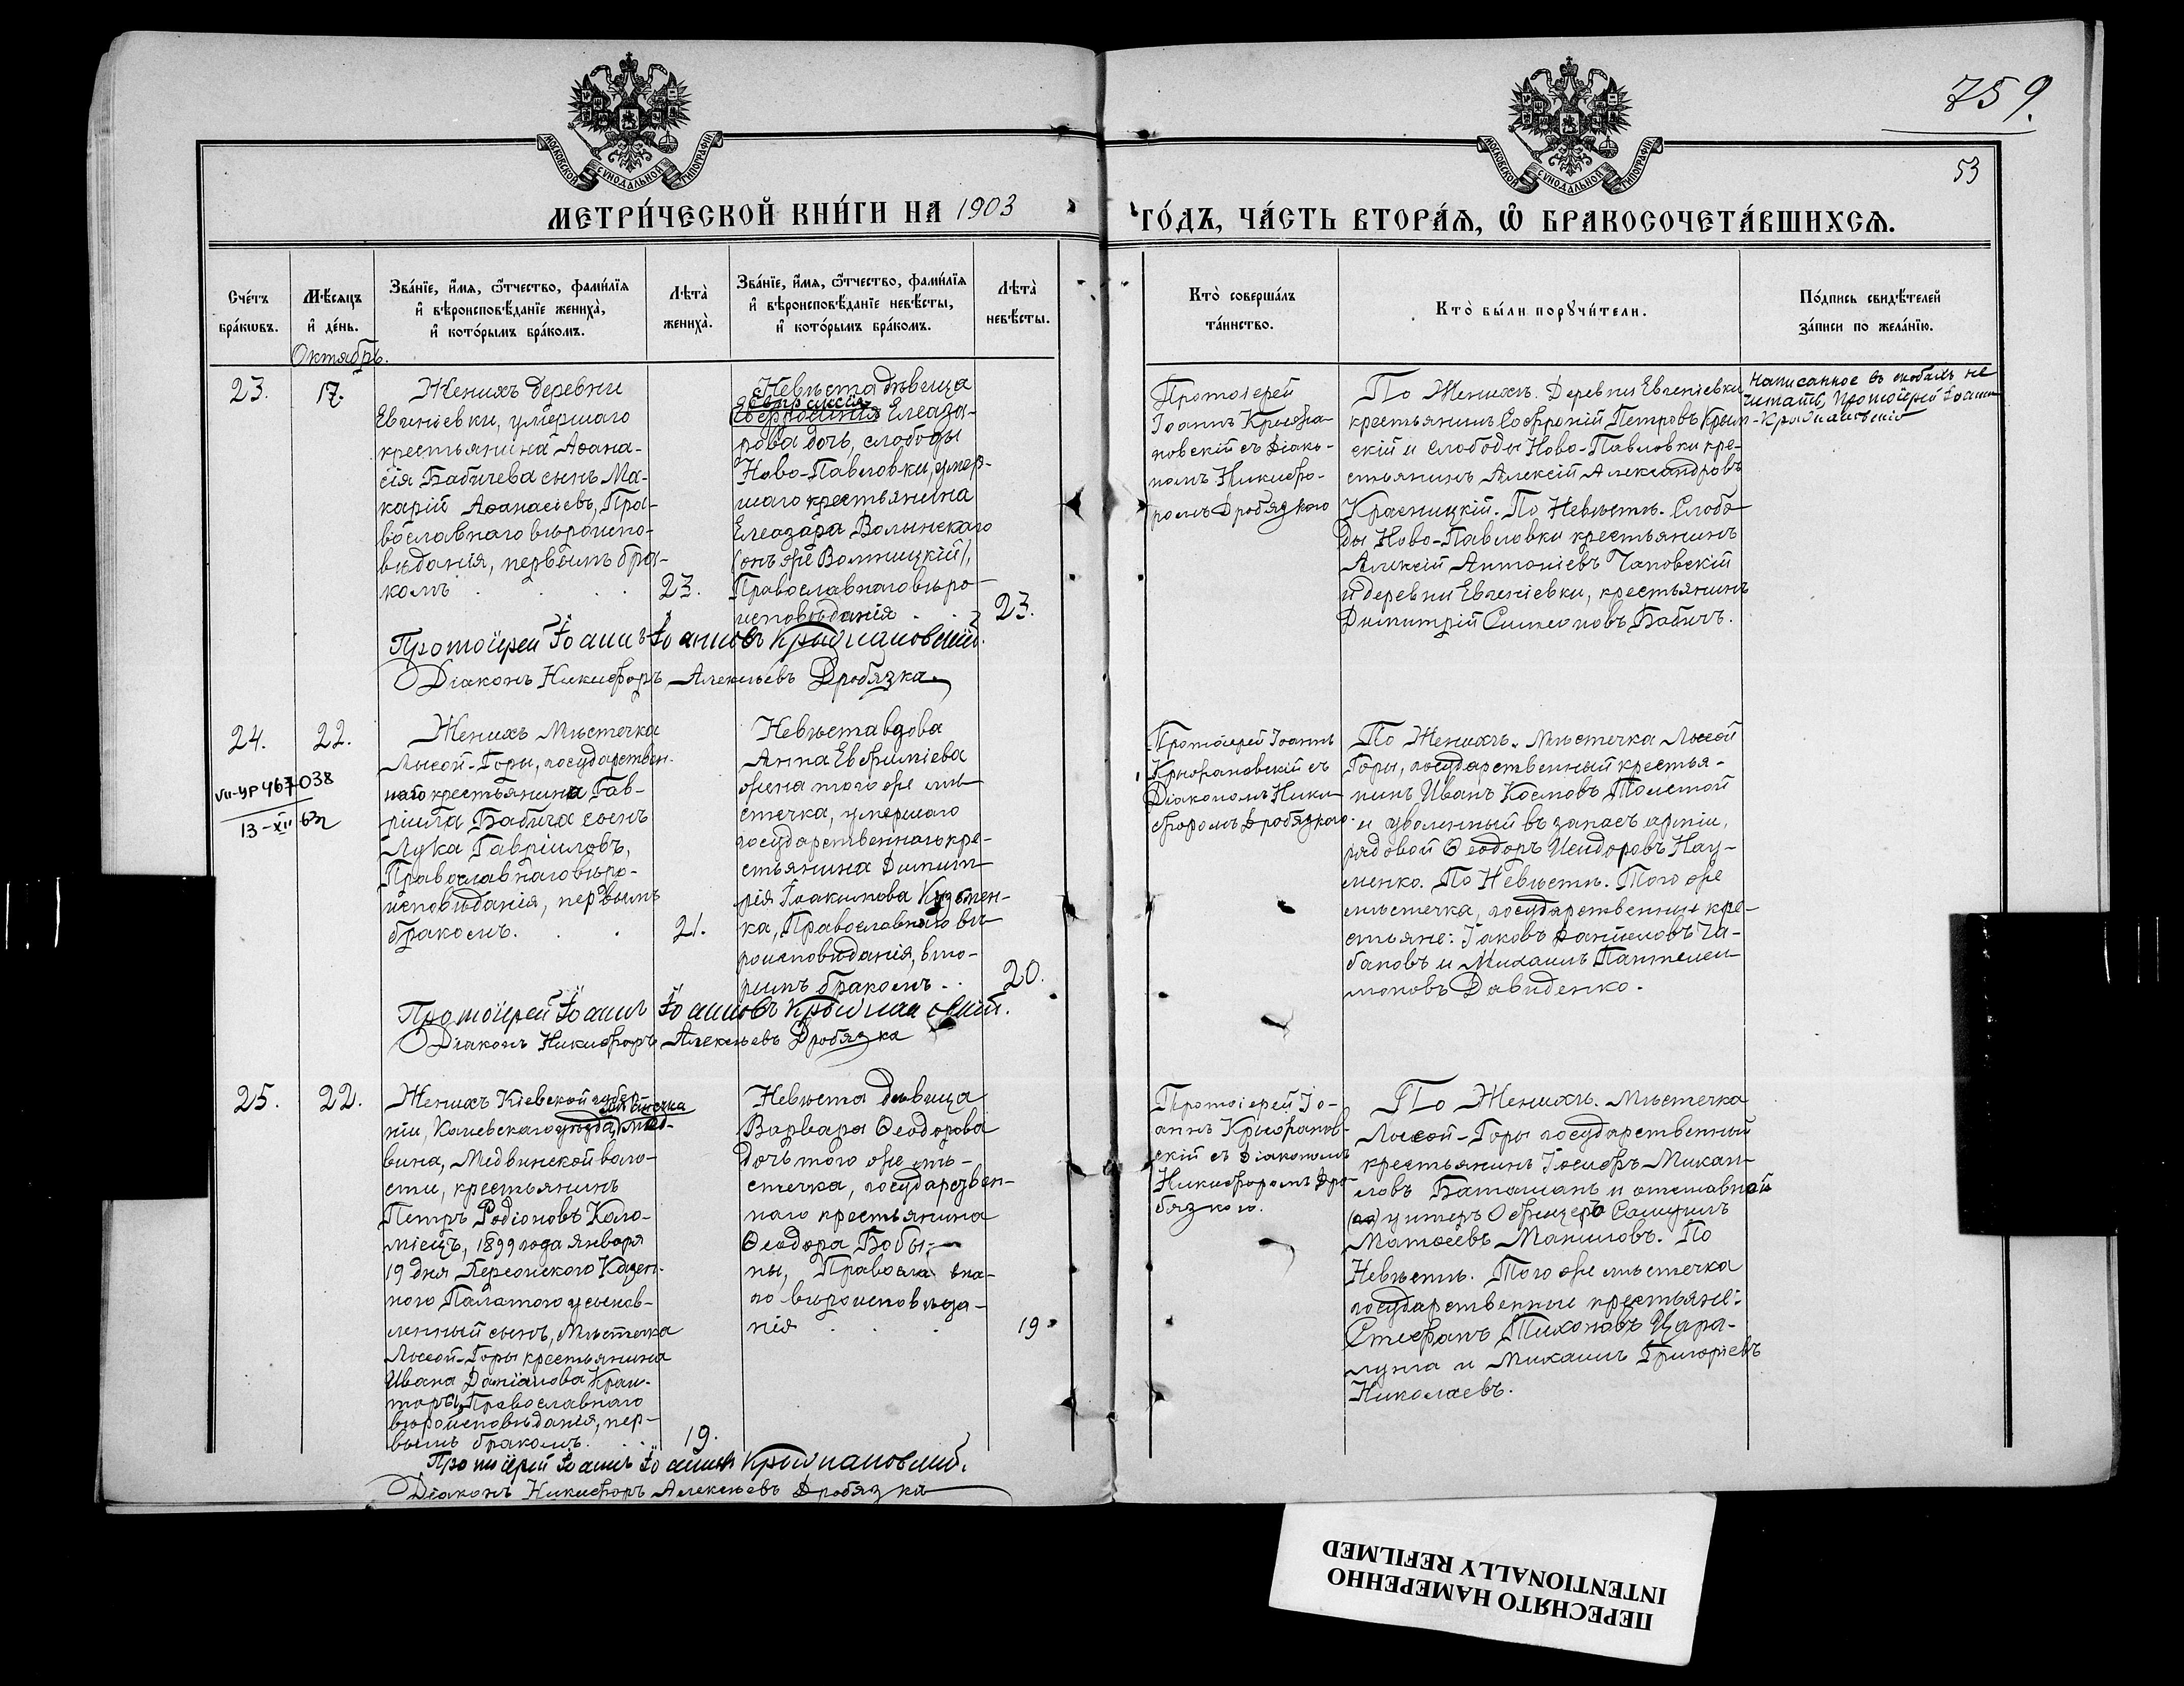 759.
53
МОСКОВСКОЙ СѴНОДАЛЬНОЙ ТИПОГРАФІИ
МОСКОВСКОЙ СѴНОДАЛЬНОЙ ТИПОГРАФІИ
МЕТРИ́ЧЕСКОЙ КНИ́ГИ НА 1903
ГО́ДЪ, ЧА́СТЬ ВТОРА́Ѧ, Ѽ БРАКОСОЧЕТА́ВШИХСѦ.
Сче́тъ
бра́кѡвъ.
Мѣ́сѧцъ
и҆ де́нь.
Октябрь.
Зва́нїе, и҆́мѧ, ѻ҆́тчество, фами́лїѧ
и҆ вѣроисповѣ́данїе жениха̀,
и҆ кото́рымъ бра́комъ.
Лѣта̀
жениха̀.
Зва́нїе, и҆́мѧ, ѻ҆́тчество, фами́лїѧ
и҆ вѣроисповѣ́данїе невѣ́сты,
и҆ кото́рымъ бра́комъ.
Лѣта̀
невѣ́сты.
Кто̀ соверша́лъ
та́инство.
Кто̀ бы́ли порꙋчи́тели.
По́дпись свидѣ́телей
за́писи по жела́нїю.
23.
17.
Женихъ деревни
Евгеніевки, умершаго
крестьянина Аѳана-
сія Бабичева сынъ Ма-
карій Аѳанасіевъ, Пра-
вославнаго вѣроиспо-
вѣданія, первымъ бра-
комъ
23.
Невѣста дѣвица
Евфросинія Елеаза-
рова дочь, слободы
Ново-Павловки, умер-
шаго крестьянина
Елеазара Волынскаго
(онъ же Волницкій),
Православнаго вѣро-
исповѣданія
23.
Протоіерей
Іоаннъ Крыжа-
новскій съ діако-
номъ Никифо-
ромъ Дробязкого
По Женихѣ. Деревни Евгеніевки
крестьянинъ Софроній Петровъ Крым-
скій и слободы Ново-Павловки кре-
стьянинъ Алексій Александровъ
Красницкій. По Невѣстѣ. Слобо-
ды Ново-Павловки крестьянинъ
Алексій Антоніевъ Чаповскій
и деревни Евгеніевки, крестьянинъ
Димитрій Симеоновъ Бабичъ.
Написанное въ скобахъ не
читать, Протоіерей Іоаннъ
Крыжановскій
Протоіерей Іоаннъ Іоанновъ Крыжановскій.
Діаконъ Никифоръ Алексѣевъ Дробязка
24.
22.
VII-УР 467038
13-XII 63г
Женихъ Мѣстечка
Лысой-Горы, государствен-
наго крестьянина Гав-
ріила Бабича сынъ
Лука Гавріиловъ,
Православнаго вѣро-
исповѣданія, первымъ
бракомъ.
21.
Невѣста вдова
Анна Евфиміева
жена того же мѣ-
стечка, умершаго
государственнаго кре-
стьянина Димит-
рія Іоакимова Кузьмен-
ка, Православнаго вѣ-
роисповѣданія, вто-
рымъ бракомъ
20.
Протоіерей Іоаннъ
Крыжановскій съ
Діакономъ Ники-
форомъ Дробязкого
По Женихѣ. Мѣстечка Лысой
Горы, государственный крестья-
нинъ Иванъ Космовъ Толстой
и уволенный въ запасъ арміи,
рядовой Ѳеодоръ Исидоровъ Нау-
менко. По Невѣстѣ. Того же
мѣстечка, государственные кре-
стьяне: Іаковъ Даніиловъ Ча-
бановъ и Михаилъ Пантелеи-
моновъ Давиденко.
Протоіерей Іоаннъ Іоанновъ Крыжановскій.
Діаконъ Никифоръ Алексѣевъ Дробязка
25.
22.
Женихъ Кіевской губер-
ніи, Каневскаго уѣзда, мѣстечка Мед-
вина, Медвинской воло-
сти, крестьянинъ
Петръ Родіоновъ Коло-
міецъ, 1899 года Января
19 дня Херсонскою Казен-
ною Палатою усынов-
ленный сынъ, Мѣстечка
Лысой-Горы крестьянина
Ивана Даніилова
Православнаго
вѣроисповѣданія, пер-
вымъ бракомъ.
19.
Невѣста дѣвица
Варвара Ѳеодорова
дочь того же мѣ-
стечка, государствен-
наго крестьянина
Ѳеодора Бобы-
ны, Православна-
го вѣроисповѣда-
нія
19.
Протоіерей Іо-
аннъ Крыжанов-
скій съ діакономъ
Никифоромъ Дро-
бязкого.
По Женихѣ. Мѣстечка
Лысой-Горы государственный
крестьянинъ Іосифъ Михаи-
ловъ Баташанъ и отставной
унтеръ Офицеръ Самуилъ
Матѳеевъ Маниловъ. По
Невѣстѣ. Того же мѣстечка
государственные крестьяне:
Стефанъ Тихоновъ Цара-
лунга и Михаилъ Григоріевъ
Николаевъ.
Протоіерей Іоаннъ Іоанновъ Крыжановскій.
Діаконъ Никифоръ Алексѣевъ Дробязка
ПЕРЕСНЯТО НАМЕРЕННО
INTENTIONALLY REFILMED